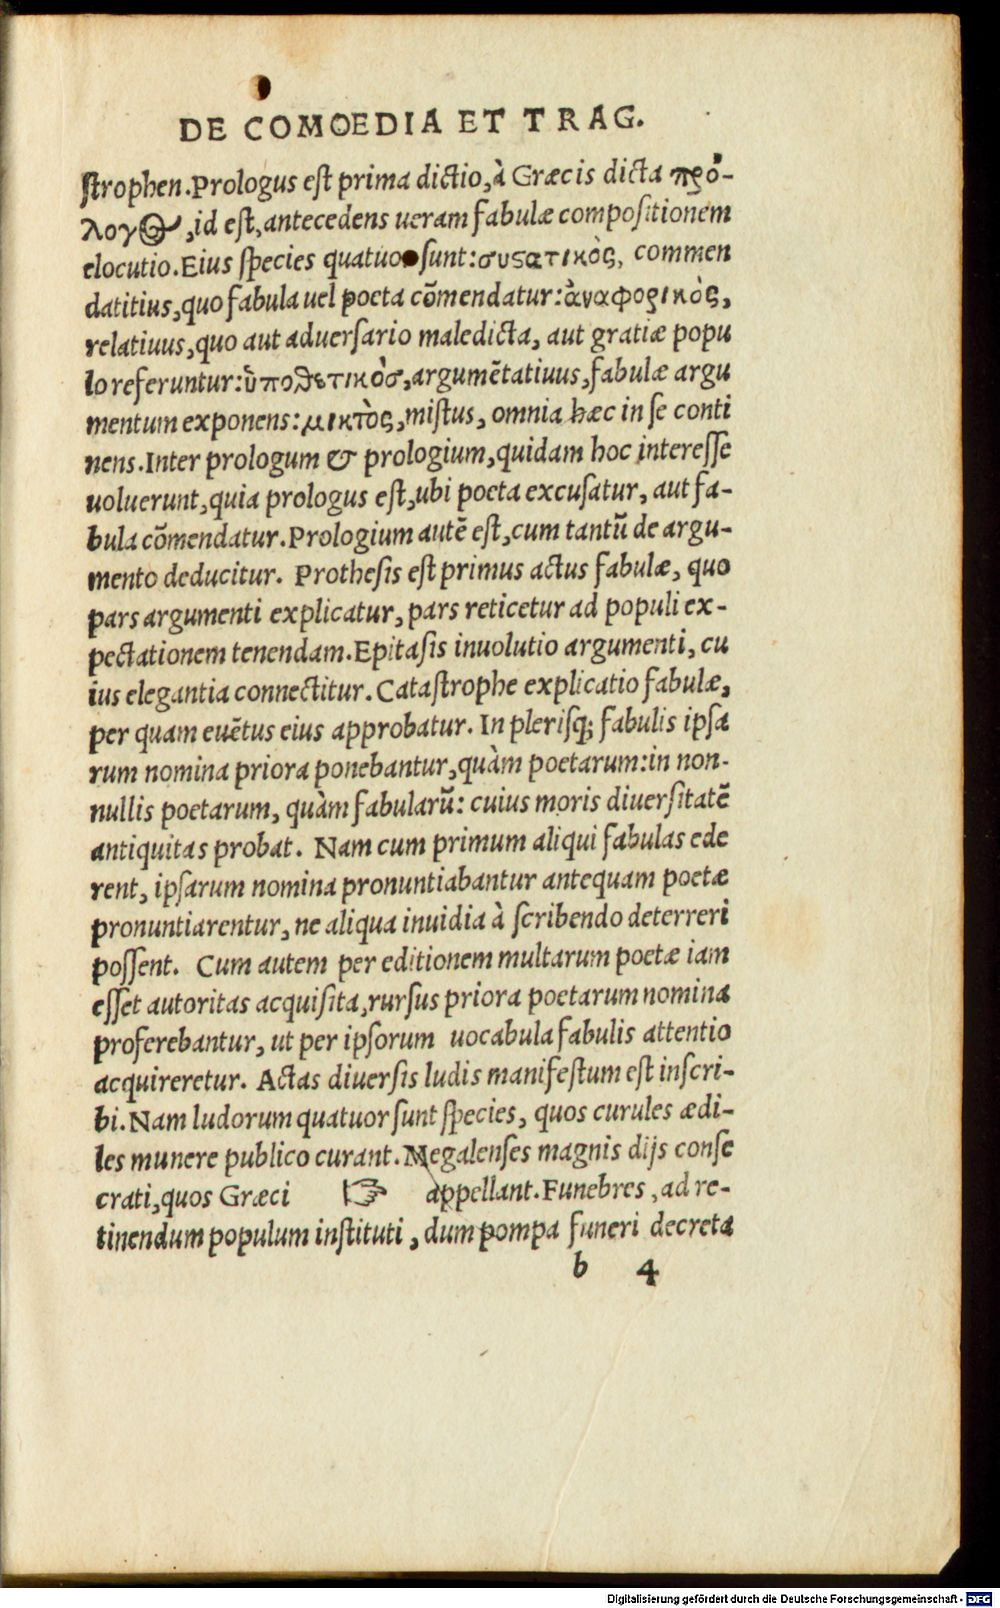 DE COMOEDIA ET TRAG.
strophen. Prologus est prima dictio, à Græcis dicta πρό-
λογος, id est, antecedens ueram fabulæ compositionem
elocutio. Eius species quatuor sunt: συςατικὸς, commen
datitius, quo fabula uel poeta cõmendatur: ἀναφορικὸς,
relatiuus, quo aut aduersario maledicta, aut gratiæ popu
lo referuntur: ὑποθετικὸσ, argumẽtatiuus, fabulæ argu
mentum exponens: μικτὸς, mistus, omnia hæc in se conti
nens. Inter prologum & prologium, quidam hoc interesse
uoluerunt, quia prologus est, ubi poeta excusatur, aut fa-
bula cõmendatur. Prologium autẽ est, cum tantũ de argu-
mento deducitur. Prothesis est primus actus fabulæ, quo
pars argumenti explicatur, pars reticetur ad populi ex-
pectationem tenendam. Epitasis inuolutio argumenti, cu
ius elegantia connectitur. Catastrophe explicatio fabulæ,
per quam euẽtus eius approbatur. In plerisq; fabulis ipsa
rum nomina priora ponebantur, quàm poetarum: in non-
nullis poetarum, quàm fabularũ: cuius moris diuersitatẽ
antiquitas probat. Nam cum primum aliqui fabulas ede
rent, ipsarum nomina pronuntiabantur antequam poetæ
pronuntiarentur, ne aliqua inuidia à scribendo deterreri
possent. Cum autem per editionem multarum poetæ iam
esset autoritas acquisita, rursus priora poetarum nomina
proferebantur, ut per ipsorum uocabula fabulis attentio
acquireretur. Actas diuersis ludis manifestum est inscri-
bi. Nam ludorum quatuor sunt species, quos curules ædi-
les munere publico curant. Megalenses magnis dijs conse
crati, quos Græci ☞ appellant. Funebres, ad re-
tinendum populum instituti, dum pompa funeri decreta
b 4
Digitalisierung gefördert durch die Deutsche Forschungsgemeinschaft - DFG